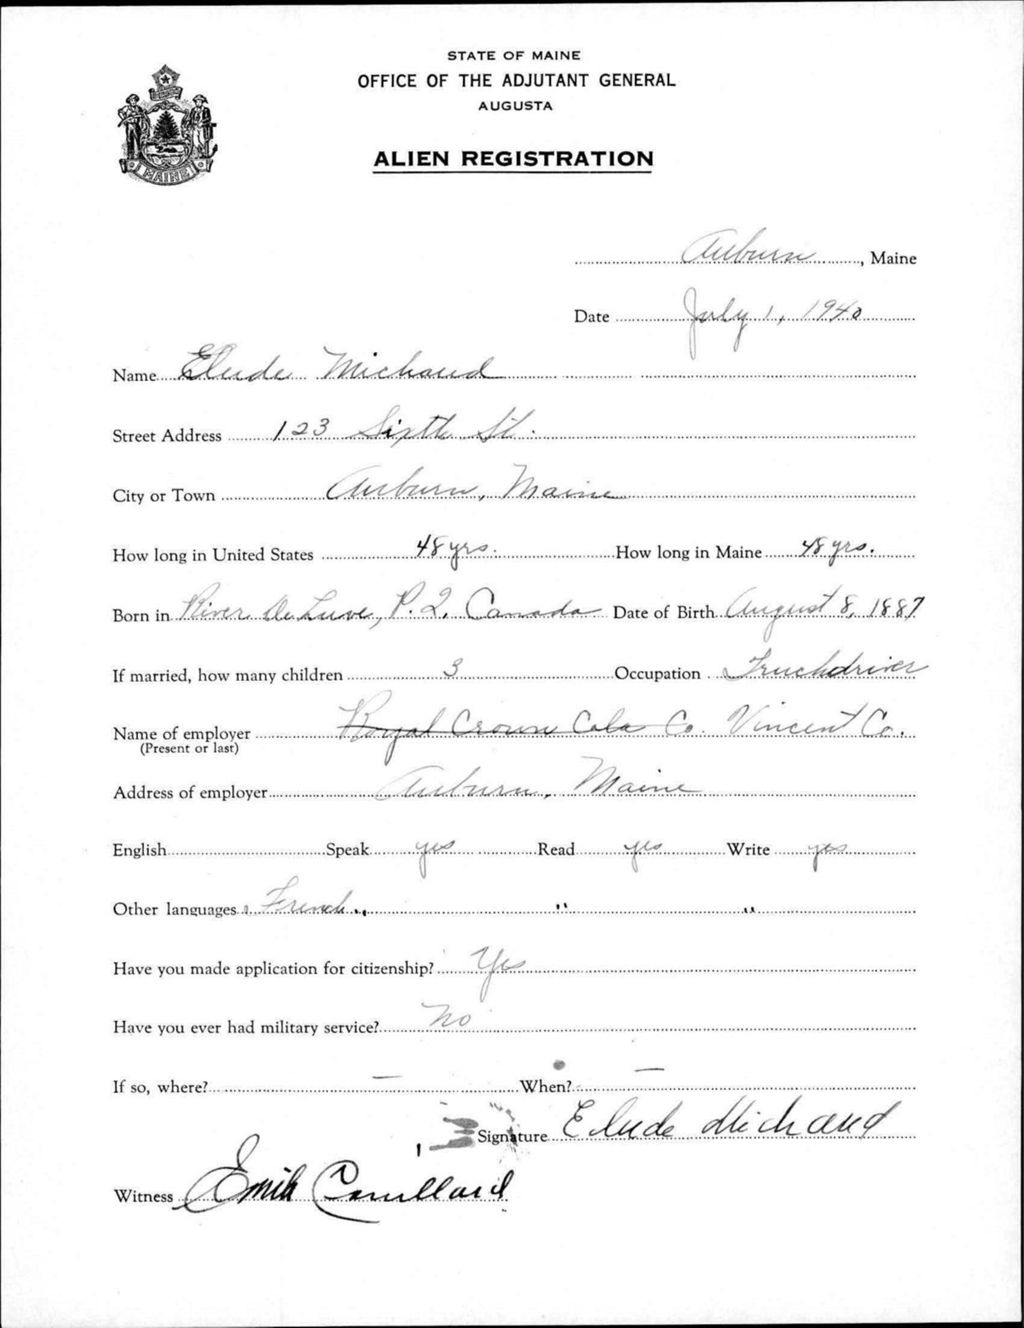 STATE OF MAINE
OFFICE OF THE ADJUTANT GENERAL
AUGUSTA
ALIEN REGISTRATION
MAINE
Auburn, Maine
Date July 1, 1940
Name Elude Michaud
Street Address 123 Sixth St.
City or Town Auburn, Maine
How long in United States 48 yrs. How long in Maine 48 yrs.
Born in River De Luve, P. Q. Canada Date of Birth August 8, 1887
If married, how many children 3 Occupation Truckdriver
Name of employer Royal Crown Cola Co. Vincent Co.
(Present or last)
Address of employer Auburn, Maine
English Speak yes Read yes Write yes
Other languages French " "
Have you made application for citizenship? Yes
Have you ever had military service? No
If so, where? — When? —
Signature Elude Michaud
Witness Emile